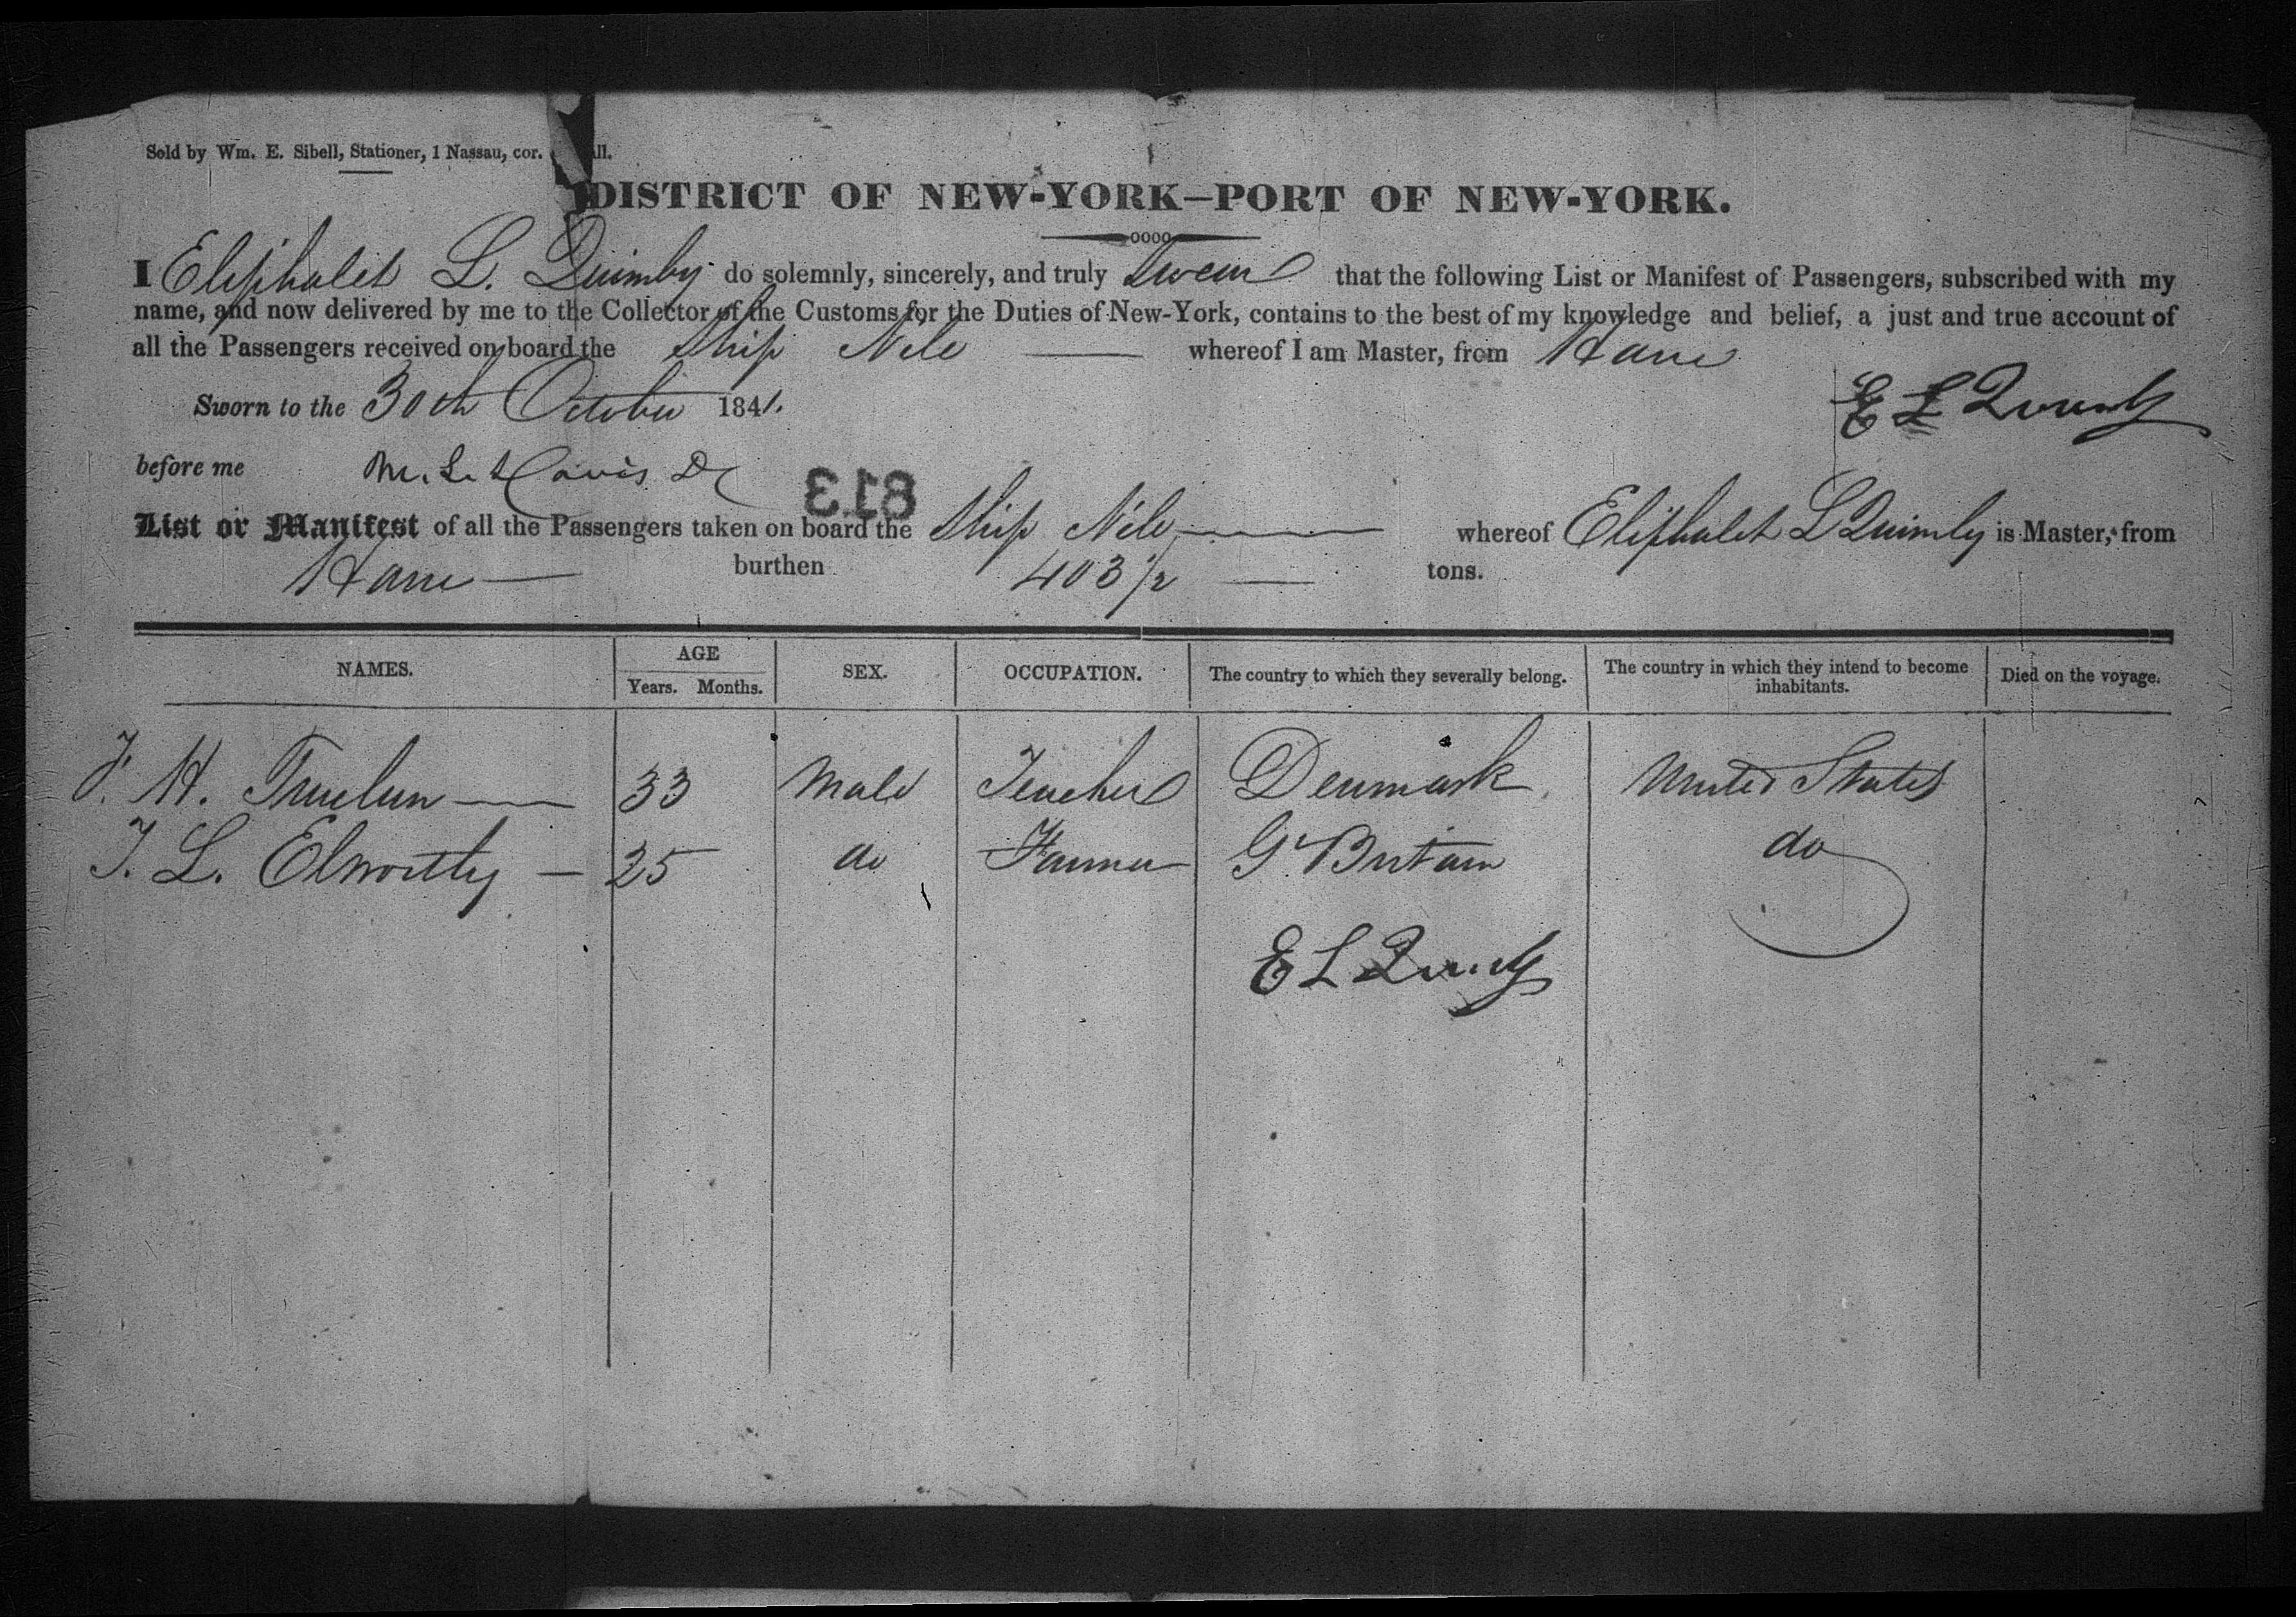 Sold by Wm. E. Sibell, Stationer, 1 Nassau, cor. all.
DISTRICT OF NEW-YORK—PORT OF NEW-YORK.
I Eliphalet L. Quimby do solemnly, sincerely, and truly Swear that the following List or Manifest of Passengers, subscribed with my
name, and now delivered by me to the Collector of the Customs for the Duties of New-York, contains to the best of my knowledge and belief, a just and true account of
all the Passengers received on board the Ship Nile whereof I am Master, from Havre
Sworn to the 30th October 1841. E L Quimby
before me M. L. Davis
813
List or Manifest of all the Passengers taken on board the Ship Nile whereof Eliphalet L Quimby is Master, from
Havre burthen 403 1/2 tons.
NAMES. AGE Years. Months. SEX. OCCUPATION. The country to which they severally belong. The country in which they intend to become inhabitants. Died on the voyage.
F. H. 33 Male Teacher Denmark United States
T. L. Elworthy 25 do Farmer Gt Britain do
E L Quimby